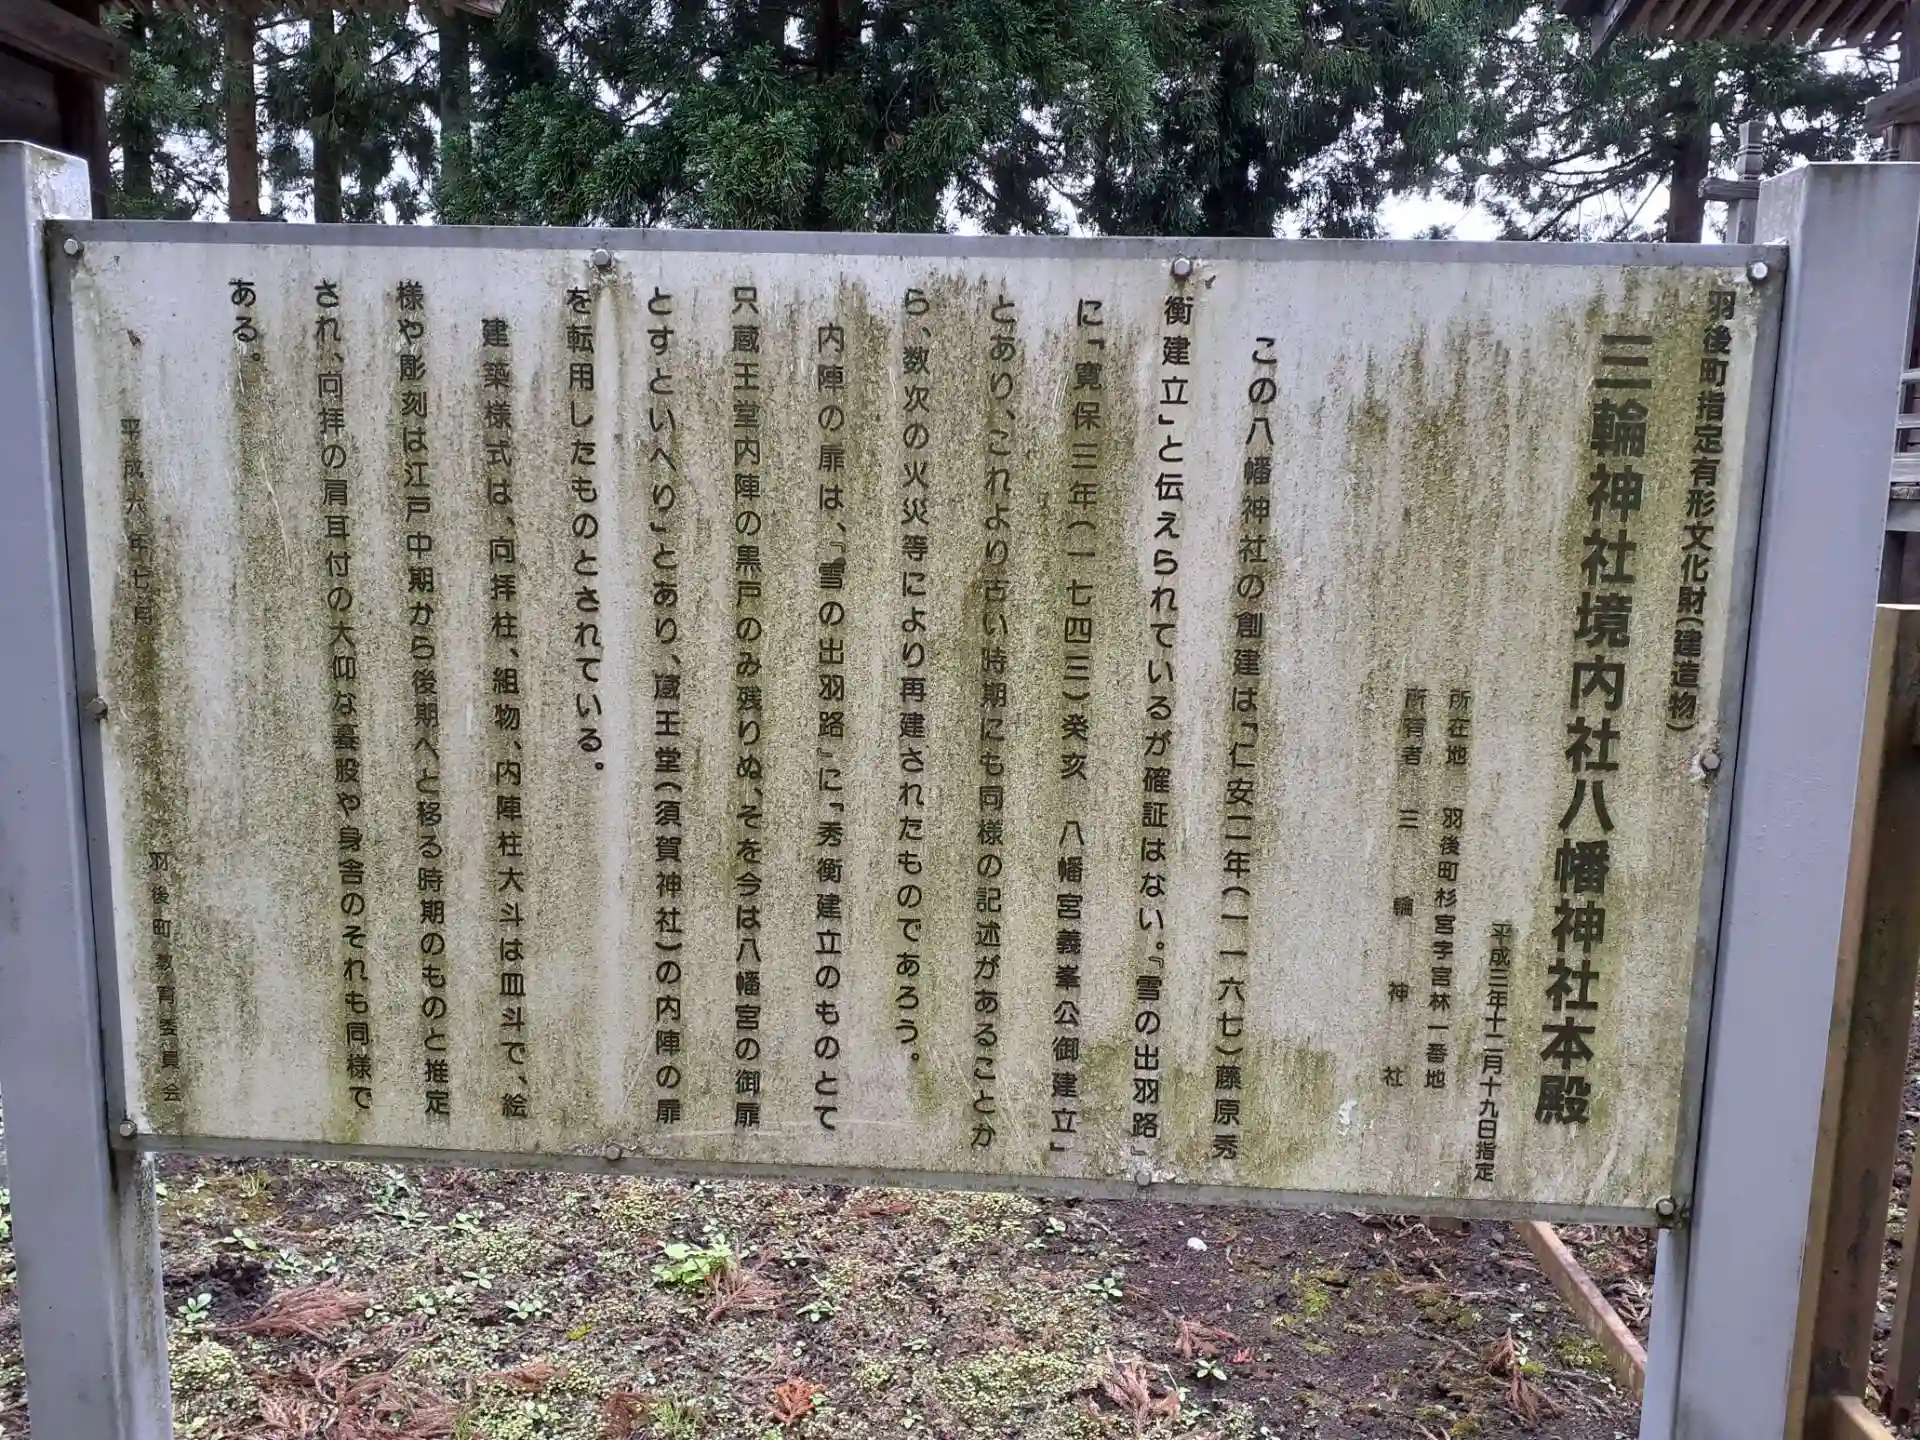 羽後町指定有形文化財(建造物)
三輪神社境内社八幡神社本殿
平成三年十二月十九日指定
所在地　羽後町杉宮字宮林一番地
所有者　三輪神社
この八幡神社の創建は、「仁安二年(一一六七)藤原秀
衡建立」と伝えられているが確証はない。『雪の出羽路』
に「寛保三年(一七四三)癸亥　八幡宮義峯公御建立」
とあり、これより古い時期にも同様の記述があることか
ら、数次の火災等により再建されたものであろう。
内陣の扉は、『雪の出羽路』に「秀衡建立のものとて
只蔵王堂内陣の黒戸のみ残りぬ、そを今は八幡宮の御扉
とすといへり」とあり、蔵王堂(須賀神社)の内陣の扉
を転用したものとされている。
建築様式は、向拝柱、組物、内陣柱大斗は皿斗で、絵
様や彫刻は江戸中期から後期へと移る時期のものと推定
され、向拝の肩耳付の大仰な蟇股や身舎のそれも同様で
ある。
平成六年七月
羽後町教育委員会